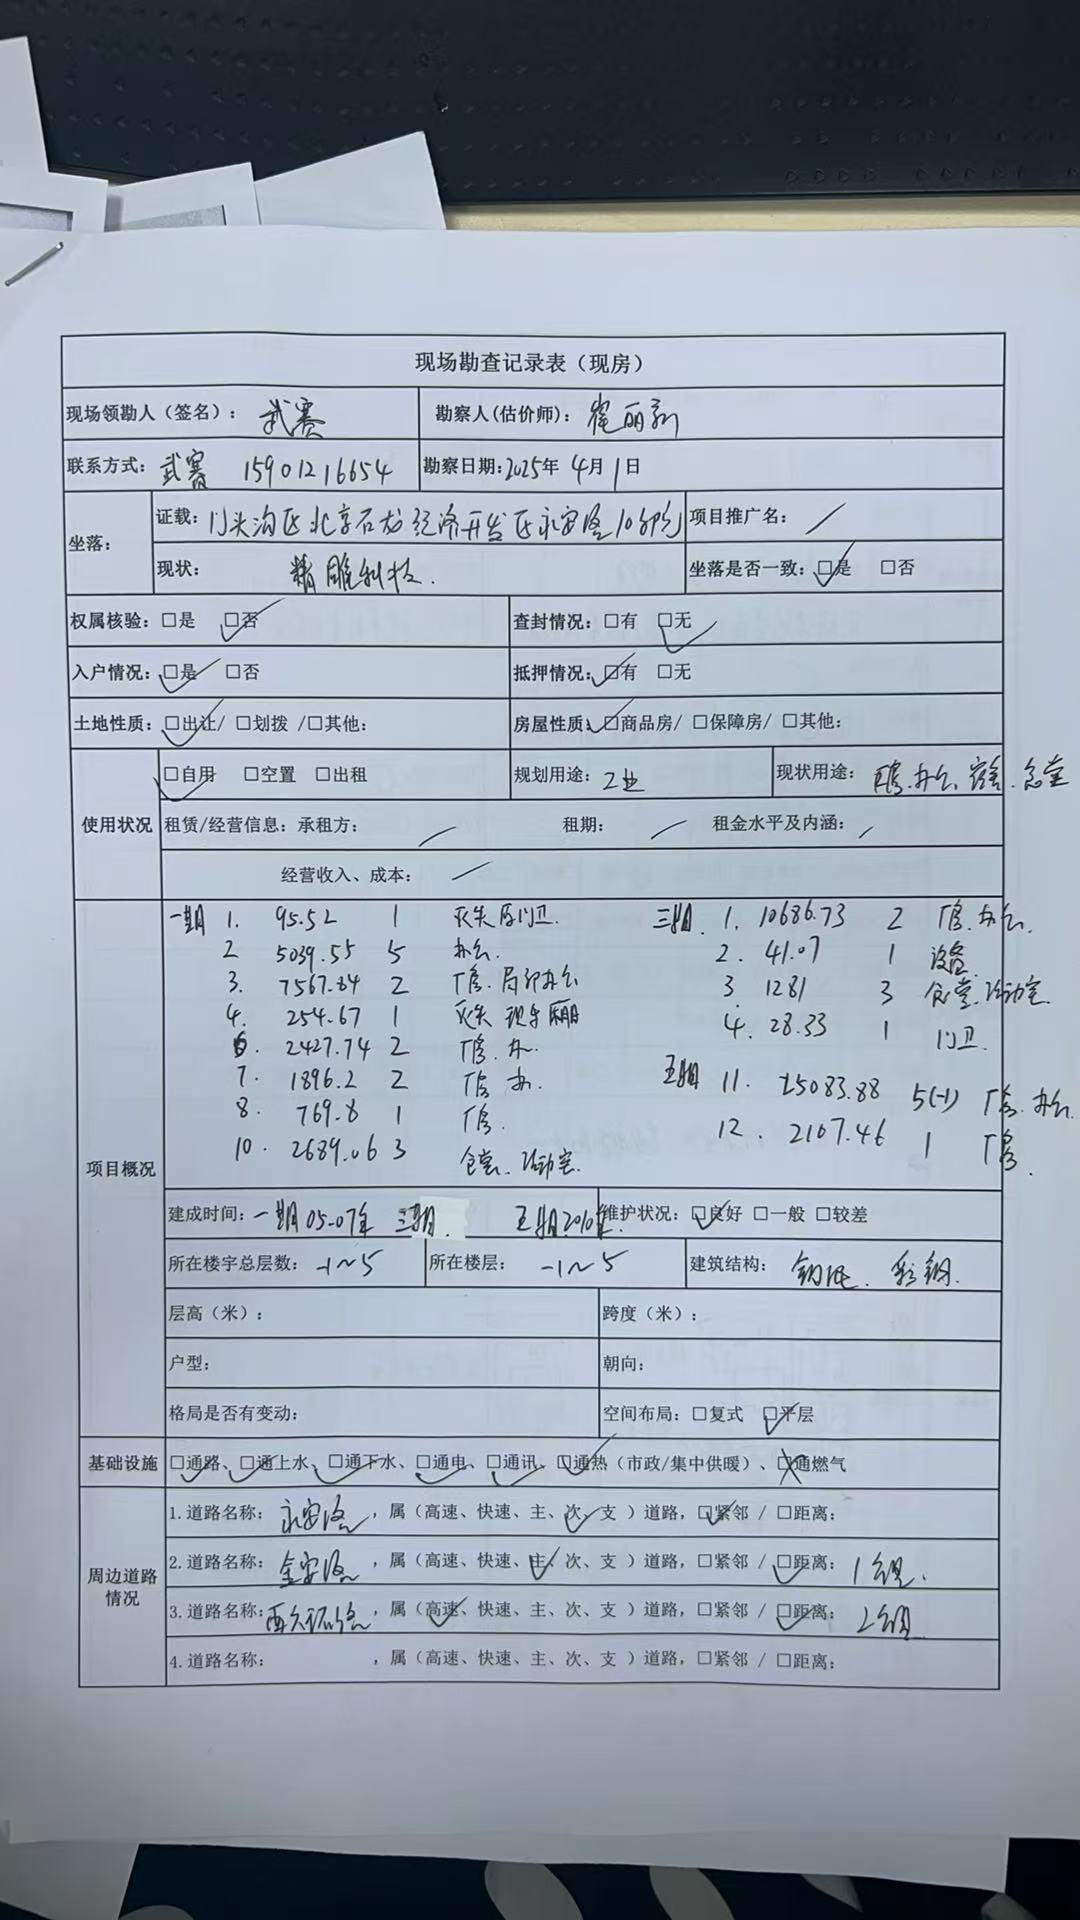 现场勘查记录表（现房）
现场领勘人（签名）： 武赛 勘察人(估价师)： 崔丽新
联系方式：武赛 15901216654 勘察日期:2025年 4月1日
坐落： 证载：门头沟区北京石龙经济开发区永安路10号 项目推广名：/
现状： 精雕科技. 坐落是否一致：☑是 □否
权属核验：□是 ☑否 查封情况：□有 ☑无
入户情况：☑是 □否 抵押情况：☑有 □无
土地性质：☑出让/ □划拨 /□其他： 房屋性质：☑商品房/ □保障房/ □其他：
使用状况 ☑自用 □空置 □出租 规划用途：工业 现状用途：厂房.办公.宿舍.食堂
租赁/经营信息：承租方：/ 租期：/ 租金水平及内涵：/
经营收入、成本：/
项目概况
一期 1. 95.52 1 灭失 原门卫.
2 5039.55 5 办公.
3. 7567.64 2 厂房.局部办公
4. 254.67 1 灭失 现车棚
6. 2427.74 2 厂房.办.
7. 1896.2 2 厂房 办.
8. 769.8 1 厂房.
10. 2689.06 3 食堂、活动室.
三期. 1. 10686.73 2 厂房.办公.
2. 41.07 1 设备
3 1281 3 食堂.活动室.
4. 28.33 1 门卫.
五期 11. 25083.88 5(-1) 厂房.办公.
12. 2107.46 1 厂房.
建成时间：一期05-07年 三期. 五期2010年. 维护状况：☑良好 □一般 □较差
所在楼宇总层数：-1~5 所在楼层：-1~5 建筑结构：钢混、彩钢.
层高（米）： 跨度（米）：
户型： 朝向：
格局是否有变动： 空间布局：□复式 ☑平层
基础设施 ☑通路、☑通上水、☑通下水、☑通电、☑通讯、☑通热（市政/集中供暖）、☒通燃气
周边道路情况
1.道路名称：永安路，属（高速、快速、主、次✓、支 ）道路，☑紧邻 / □距离：
2.道路名称：金安路，属（高速、快速、主✓、次、支 ）道路，□紧邻 / ☑距离：1公里.
3.道路名称：，属（高速✓、快速、主、次、支 ）道路，□紧邻 / ☑距离：2公里
4.道路名称： ，属（高速、快速、主、次、支 ）道路，□紧邻 / □距离：